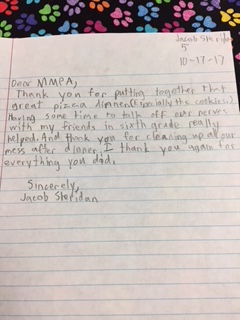 Jacob Steridan
5
10-17-17
Dear NMPA,
Thank you for putting together that
great pizza dinner (Especially the cookies).
Having some time to talk off our nerves
with my friends in sixth grade really
helped. And thank you for cleaning up all our
mess after dinner. I thank you again for
everything you did.
Sincerely,
Jacob Steridan